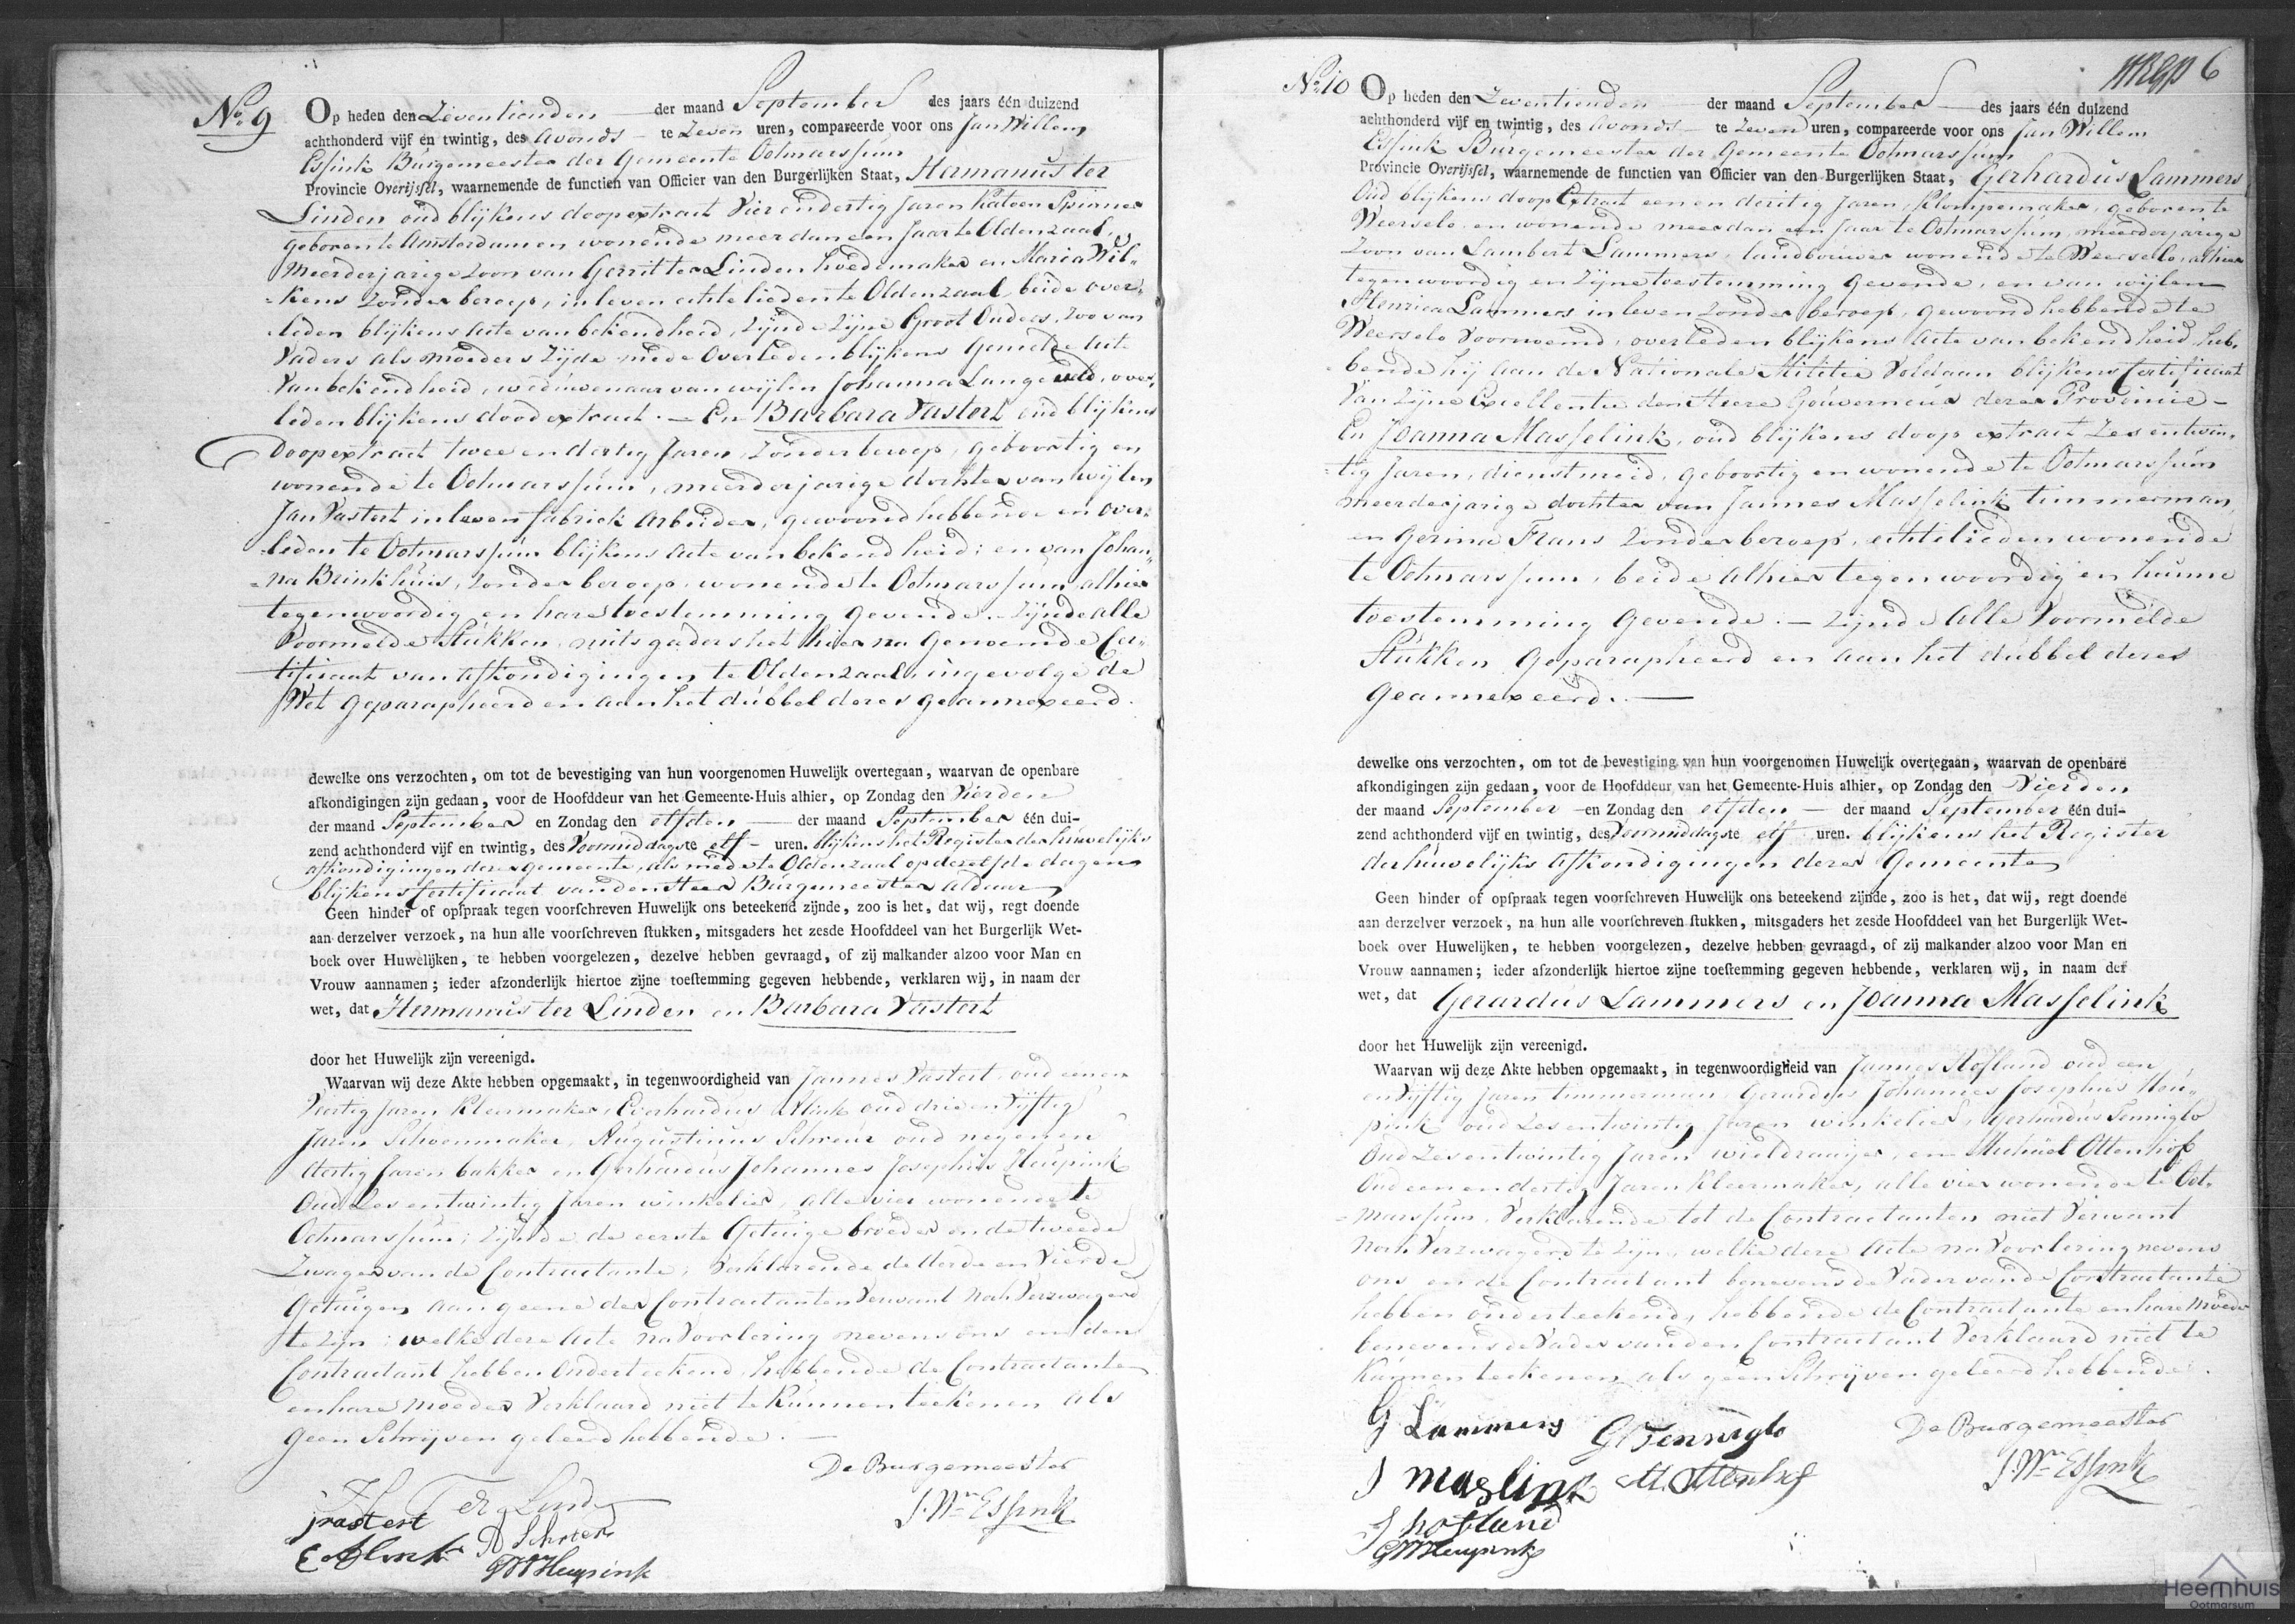 No. 9
Op heden den Zeventienden der maand September des jaars één duizend
achthonderd vijf en twintig, des Avonds te Zeven uren, compareerde voor ons Jan Willem
Essink Burgemeester der Gemeente Ootmarssum
Provincie Overijssel, waarnemende de functien van Officier van den Burgerlijken Staat, Hermanus ter
Linden oud blijkens doopextract Vier en dertig Jaren Katoen Spinner
geboren te Amsterdam en wonende meer dan een Jaar te Oldenzaal,
Meerderjarige Zoon van Gerrit ter Linden hoedemaker en Maria Wil-
-kens Zonder beroep, in leven echte lieden te Oldenzaal, beide over-
-leden blijkens acte van bekendheid, Zijnde Zijne Groot Ouders, Zoo van
Vaders als moeders Zijde mede Overleden blijkens Gemelde acte
Van bekendheid, weduwenaar van wijlen Johanna Langeveld, over-
leden blijkens dood extract. — En Barbara Vastert oud blijkens
Doopextract twee en dertig Jaren, Zonder beroep, geboortig en
wonende te Ootmarssum, meerderjarige dochter van wijlen
Jan Vastert in leven fabriek Arbeider, gewoond hebbende en over-
-leden te Ootmarssum blijkens acte van bekendheid; en van Johan-
-na Brinkhuis, Zonder beroep, wonende te Ootmarssum, alhier
tegenwoordig en hare toestemming Gevende. — Zijnde alle
Voormelde Stukken, mitsgaders het hier na Genoemde Cer-
tificaat van afkondigingen te Oldenzaal, ingevolge de
Wet geparapheerd en aan het dubbel deres geannexeerd.
dewelke ons verzochten, om tot de bevestiging van hun voorgenomen Huwelijk overtegaan, waarvan de openbare
afkondigingen zijn gedaan, voor de Hoofddeur van het Gemeente-Huis alhier, op Zondag den Vierden
der maand September en Zondag den elfden der maand September één dui-
zend achthonderd vijf en twintig, des Voormiddags te elf uren. blijkens het Register der huwelijks
afkondigingen deser gemeente, als mede te Oldenzaal op dezelfde dagen
blijkens Certificaat van den Heer Burgemeester aldaar
Geen hinder of opspraak tegen voorschreven Huwelijk ons beteekend zijnde, zoo is het, dat wij, regt doende
aan derzelver verzoek, na hun alle voorschreven stukken, mitsgaders het zesde Hoofddeel van het Burgerlijk Wet-
boek over Huwelijken, te hebben voorgelezen, dezelve hebben gevraagd, of zij malkander alzoo voor Man en
Vrouw aannamen; ieder afzonderlijk hiertoe zijne toestemming gegeven hebbende, verklaren wij, in naam der
wet, dat Hermanus ter Linden en Barbara Vastert
door het Huwelijk zijn vereenigd.
Waarvan wij deze Akte hebben opgemaakt, in tegenwoordigheid van Jannes Vastert, oud eenen
Veertig Jaren Kleermaker, Everhardus Alink oud drie en Vijftig
Jaren Schoenmaker, Augustinus Schreur oud negen en
dertig Jaren bakker en Gerhardus Johannes Josephus Heupink
Oud Zes en twintig Jaren winkelier, alle vier wonende te
Ootmarssum; Zijnde de eerste Getuige broeder en de tweede
Zwager van de Contractante; Verklarende de derde en Vierde
Getuigen aan geene der Contractanten Verwant noch Verzwagerd
te Zijn; welke dere Acte na Voorlezing nevens ons en den
Contractant hebben Onderteekend, hebbende de Contractante
en hare Moeder Verklaard niet te Kunnen teekenen als
Geen Schrijven geleerd hebbende.
De Burgemeester
H Ter Linden
J. Wm Essink
jvastert
A Schroer
E Alink
GJJ Heupink
No. 10
6
Op heden den Zeventienden der maand September des jaars één duizend
achthonderd vijf en twintig, des Avonds te Zeven uren, compareerde voor ons Jan Willem
Essink Burgemeester der Gemeente Ootmarssum
Provincie Overijssel, waarnemende de functien van Officier van den Burgerlijken Staat, Gerhardus Lammers
Oud blijkens doop Extract een en dertig Jaren, Klompemaker, geboren te
Weerselo, en wonende meer dan een Jaar te Ootmarssum, meerderjarige
Zoon van Lambert Lammers, landbouwer wonende te Weerselo, alhier
tegenwoordig en Zijne toestemming Gevende, en van wijlen
Henrica Lammers in leven Zonder beroep, gewoond hebbende te
Weerselo Voornoemd, overleden blijkens Acte van bekendheid, heb-
-bende hij aan de Nationale Militie Voldaan blijkens Certificaat
Van Zijne Excellentie den Heere Gouverneur dezer Provincie —
En Joanna Masselink, oud blijkens doop extract Zes en twin-
-tig Jaren, dienstmeid, geboortig en wonende te Ootmarssum
meerderjarige dochter van Jannes Masselink timmerman,
en Gerina Frans Zonder beroep, echtelieden wonende
te Ootmarssum, beide alhier tegenwoordig en hunne
toestemming Gevende. — Zijnde Alle Voormelde
Stukken Geparapheerd en aan het dubbel deres
Geannexeerd. —
dewelke ons verzochten, om tot de bevestiging van hun voorgenomen Huwelijk overtegaan, waarvan de openbare
afkondigingen zijn gedaan, voor de Hoofddeur van het Gemeente-Huis alhier, op Zondag den Vierden
der maand September en Zondag den elfden der maand September één dui-
zend achthonderd vijf en twintig, des Voormiddags te elf uren. blijkens het Register
der huwelijks afkondigingen deser Gemeente
Geen hinder of opspraak tegen voorschreven Huwelijk ons beteekend zijnde, zoo is het, dat wij, regt doende
aan derzelver verzoek, na hun alle voorschreven stukken, mitsgaders het zesde Hoofddeel van het Burgerlijk Wet-
boek over Huwelijken, te hebben voorgelezen, dezelve hebben gevraagd, of zij malkander alzoo voor Man en
Vrouw aannamen; ieder afzonderlijk hiertoe zijne toestemming gegeven hebbende, verklaren wij, in naam der
wet, dat Gerardus Lammers en Joanna Masselink
door het Huwelijk zijn vereenigd.
Waarvan wij deze Akte hebben opgemaakt, in tegenwoordigheid van Jannes Hofland oud een
en Vijftig Jaren timmerman, Gerardus Johannes Josephus Heu-
pink oud Zes en twintig Jaren winkelier, Gerhardus Tenniglo
Oud Zes en twintig Jaren wieldraaijer, en Michiel Ottenhof
Oud een en dertig Jaren Kleermaker, alle vier wonende te Oot-
-marssum, Verklarende tot de Contractanten niet Verwant
noch Verzwagerd te Zijn, welke dere Acte na Voorlezing nevens
ons en de Contractant benevens de Vader van de Contractante
hebben onderteekend, hebbende de Contractante en hare Moeder
benevens de Vader van den Contractant Verklaard niet te
Kunnen teekenen als geen Schrijven geleerd hebbende.
G Lammers
G Tenniglo
De Burgemeester
J maslink
M. Ottenhof
J. Wm Essink
J hofland
GJJ Heupink
Heemhuis
Ootmarsum